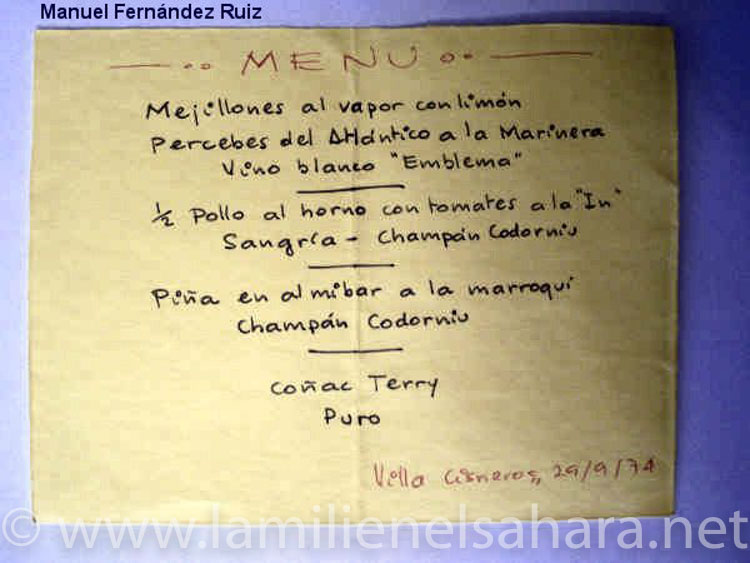 Manuel Fernández Ruiz
MENÚ
Mejillones al vapor con limón
Percebes del Atlántico a la Marinera
Vino blanco "Emblema"
½ Pollo al horno con tomates a la "In"
Sangría - Champán Codorniu
Piña en almibar a la marroquí
Champán Codorniu
Coñac Terry
Puro
Villa Cisneros, 29/9/74
© www.lamilienelsahara.net